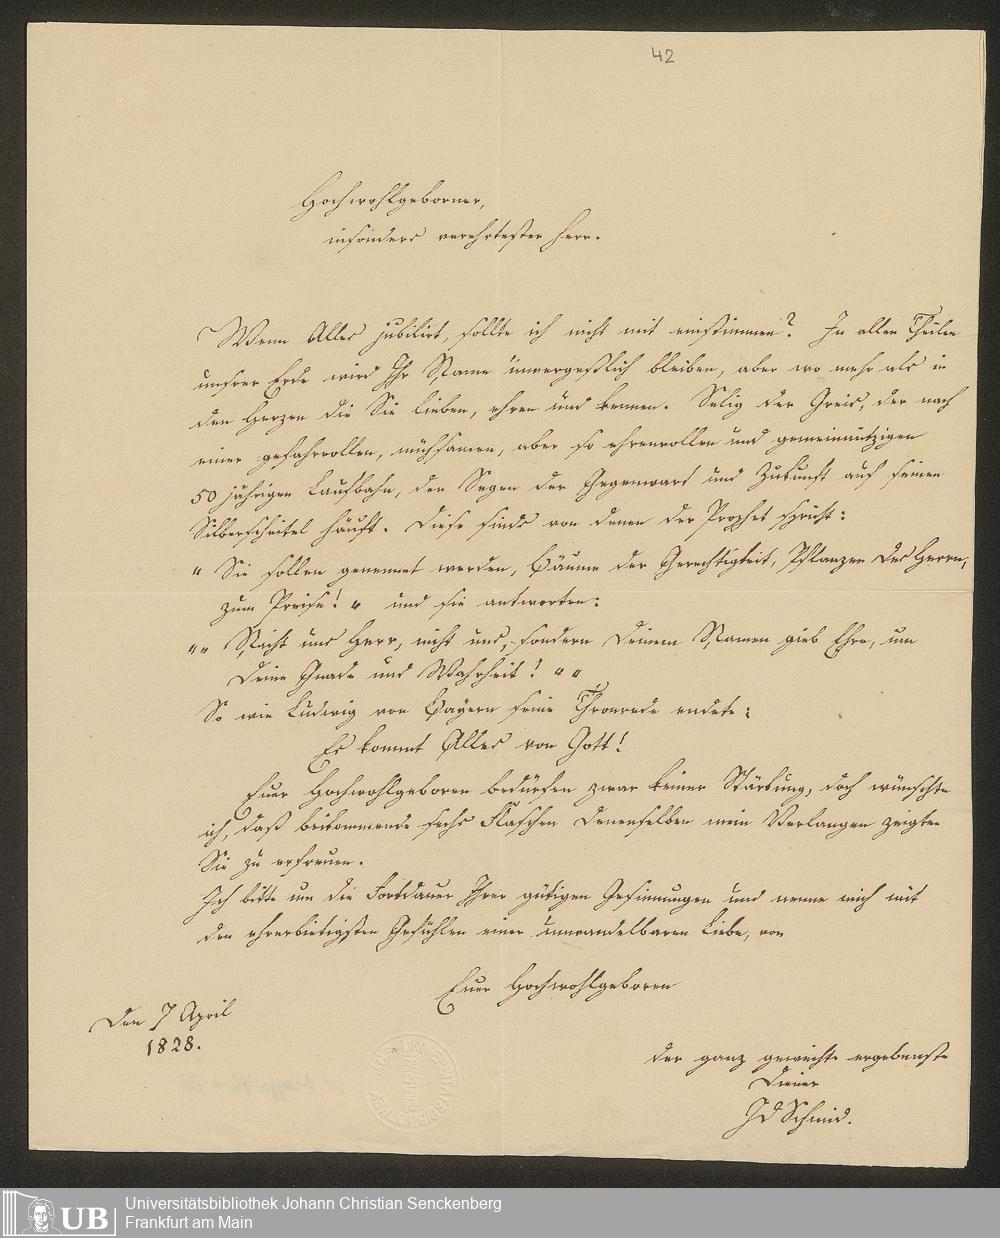 42
Hochwohlgeborner,
insonders verehrtester Herr.
Wenn Alles jubilirt, sollte ich nicht mit einstimmen? In allen Theilen
unsrer Erde wird Ihr Name unvergeßlich bleiben, aber wo mehr als in
den Herzen die Sie lieben, ehren und kennen. Selig der Greis, der nach
einer gefahrvollen, mühsamen, aber so ehrenvollen und gemeinnützigen
50 jährigen Laufbahn, den Segen der Gegenwart und Zukunft auf seinen
Silberscheitel häuft. Diese sinds von denen der Prophet spricht:
" Sie sollen genennet werden, Bäume der Gerechtigkeit, Pflanzen des Herrn,
zum Preise! " und sie antworten:
"" Nicht uns Herr, nicht uns, sondern Deinem Namen gieb Ehre, um
Deine Gnade und Wahrheit! ""
So wie Ludwig von Bayern seine Thronrede endete:
Es kommt Alles von Gott!
Euer Hochwohlgeboren bedürfen zwar keiner Stärkung, doch wünschte
ich, daß beikommende sechs Flaschen Denenselben mein Verlangen zeigten
Sie zu erfreuen.
Ich bitte um die Fortdauer Ihrer gütigen Gesinnungen und nenne mich mit
den ehrerbietigsten Gefühlen einer unwandelbaren Liebe, von
Euer Hochwohlgeboren
Den 7 April
1828.
der ganz geweihte ergebenste
Diener
JD Schmid.
UB
Universitätsbibliothek Johann Christian Senckenberg
Frankfurt am Main